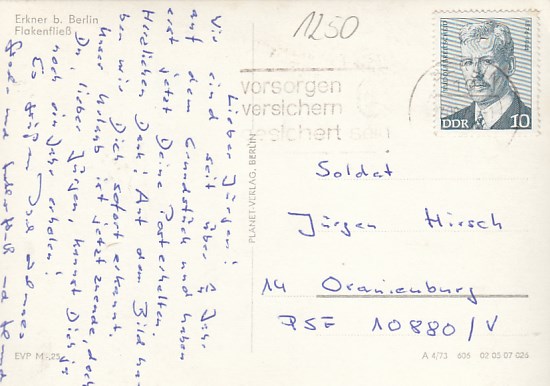 Erkner b. Berlin
Flakenfließ
1250
vorsorgen
versichern
gesichert sein
DDR 10
Lieber Jürgen!
Wir sind seit über ½ Jahr
auf dem Grundstück und haben
erst jetzt Deine Post erhalten.
Herzlichen Dank! Auf dem Bild ha-
ben wir Dich sofort erkannt.
Unser Urlaub ist jetzt zuende, doch
Du, lieber Jürgen, kannst Dich ja
noch ein Jahr erholen!
Es grüßen Dich
PLANET-VERLAG, BERLIN
Soldat
Jürgen Hirsch
14 Oranienburg
PSF 10880/V
EVP M -,25
A 4/73 605 02 05 07 026